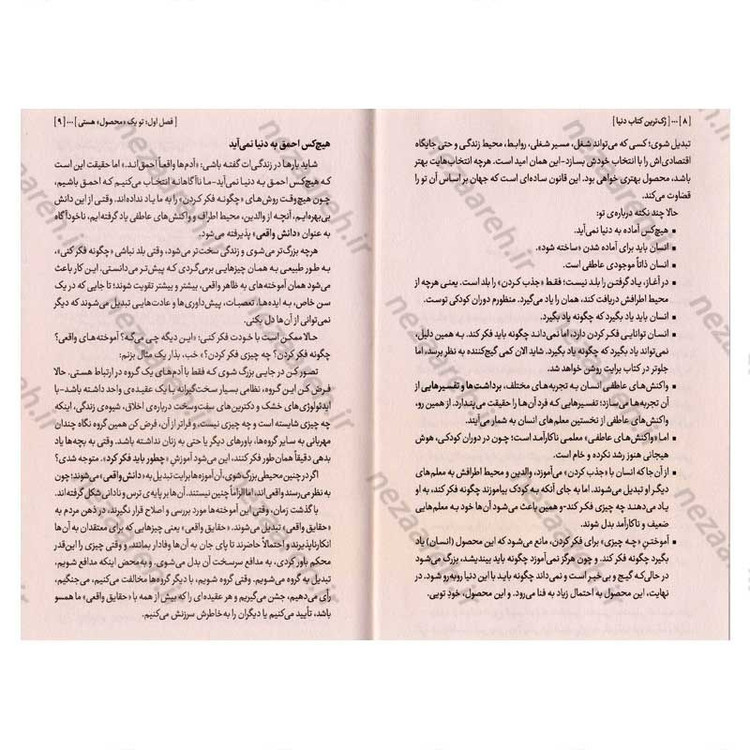 [۸] ... [رُک‌ترین کتاب دنیا]
تبدیل شوی؛ کسی که می‌تواند شغل، مسیر شغلی، روابط، محیط زندگی و حتی جایگاه
اقتصادی‌اش را با انتخاب خودش بسازد-این همان امید است. هرچه انتخاب‌هایت بهتر
باشد، محصول بهتری خواهی بود. این قانون ساده‌ای است که جهان بر اساس آن تو را
قضاوت می‌کند.
حالا چند نکته درباره‌ی تو:
▪ هیچ‌کس آماده به دنیا نمی‌آید.
▪ انسان باید برای آماده شدن «ساخته شود».
▪ انسان ذاتاً موجودی عاطفی است.
▪ در آغاز، یاد گرفتن را بلد نیست؛ فقط «جذب کردن» را بلد است. یعنی هرچه از
محیط اطرافش دریافت کند، همان را یاد می‌گیرد. منظورم دوران کودکی توست.
▪ انسان باید یاد بگیرد که چگونه یاد بگیرد.
▪ انسان توانایی فکر کردن دارد، اما نمی‌داند چگونه باید فکر کند. به همین دلیل،
نمی‌تواند یاد بگیرد که چگونه یاد بگیرد. شاید الان کمی گیج‌کننده به نظر برسد، اما
جلوتر در کتاب برایت روشن خواهد شد.
▪ واکنش‌های عاطفی انسان به تجربه‌های مختلف، برداشت‌ها و تفسیرهایی از
آن تجربه‌ها می‌سازد؛ تفسیرهایی که فرد آن‌ها را حقیقت می‌پندارد. از همین رو،
واکنش‌های عاطفی از نخستین معلم‌های انسان به شمار می‌آیند.
▪ اما «واکنش‌های عاطفی» معلمی ناکارآمد است؛ چون در دوران کودکی، هوش
هیجانی هنوز رشد نکرده و خام است.
▪ از آن‌جا که انسان با «جذب کردن» می‌آموزد، والدین و محیط اطرافش به معلم‌های
دیگر او تبدیل می‌شوند. اما به جای آنکه به کودک بیاموزند چگونه فکر کند، به او
یاد می‌دهند چه چیزی فکر کند-و همین باعث می‌شود آن‌ها خود به معلم‌هایی
ضعیف و ناکارآمد بدل شوند.
▪ آموختن «چه چیزی» برای فکر کردن، مانع می‌شود که این محصول (انسان) یاد
بگیرد چگونه فکر کند. و چون هرگز نمی‌آموزد چگونه باید بیندیشد، بزرگ می‌شود
در حالی‌که گیج و بی‌خبر است و نمی‌داند چگونه باید با این دنیا روبه‌رو شود. در
نهایت، این محصول به احتمال زیاد به فنا می‌رود. و این محصول، خودِ تویی.
[فصل اول: تو یک «محصول» هستی] ... [۹]
هیچ‌کس احمق به دنیا نمی‌آید
شاید بارها در زندگی‌ات گفته باشی: «آدم‌ها واقعاً احمق‌اند.» اما حقیقت این است
که هیچ‌کس احمق به دنیا نمی‌آید-ما ناآگاهانه انتخاب می‌کنیم که احمق باشیم،
چون هیچ‌وقت روش‌های «چگونه فکر کردن» را به ما یاد نداده‌اند. وقتی از این دانش
بی‌بهره‌ایم، آنچه از والدین، محیط اطراف و واکنش‌های عاطفی یاد گرفته‌ایم، ناخودآگاه
به عنوان «دانش واقعی» پذیرفته می‌شود.
هرچه بزرگ‌تر می‌شوی و زندگی سخت‌تر می‌شود، وقتی بلد نباشی «چگونه فکر کنی»،
به طور طبیعی به همان چیزهایی برمی‌گردی که پیش‌تر می‌دانستی. این کار باعث
می‌شود همان آموخته‌های به ظاهر واقعی، بیشتر و بیشتر تقویت شوند؛ تا جایی که در یک
سن خاص، به ایده‌ها، تعصبات، پیش‌داوری‌ها و عادت‌هایی تبدیل می‌شوند که دیگر
نمی‌توانی از آن‌ها دل بکنی.
حالا ممکن است با خودت فکر کنی: «این دیگه چی می‌گه؟ آموخته‌های واقعی؟
چگونه فکر کردن؟ چه چیزی فکر کردن؟» خب، بذار یک مثال بزنم:
تصور کن در جایی بزرگ شوی که فقط با آدم‌های یک گروه در ارتباط هستی. حالا
فرض کن این گروه، نظامی بسیار سخت‌گیرانه با یک عقیده‌ی واحد داشته باشد-با
ایدئولوژی‌های خشک و دکترین‌های سفت‌وسخت درباره‌ی اخلاق، شیوه‌ی زندگی، اینکه
چه چیزی شایسته است و چه چیزی نیست. و فراتر از آن، فرض کن همین گروه نگاه چندان
مهربانی به سایر گروه‌ها، باورهای دیگر یا حتی به زنان نداشته باشد. وقتی به بچه‌ها یاد
بدهی دقیقاً همان‌طور فکر کنند، این می‌شود آموزشِ «چطور باید فکر کرد». متوجه شدی؟
اگر در چنین محیطی بزرگ شوی، آن آموزه‌ها برایت تبدیل به «دانش واقعی» می‌شوند؛ چون
به نظر می‌رسند واقعی‌اند، اما الزاماً چنین نیستند. آن‌ها بر پایه‌ی ترس و نادانی شکل گرفته‌اند.
با گذشت زمان، وقتی این آموخته‌ها مورد بررسی و اصلاح قرار نگیرند، در ذهن مردم به
«حقایق واقعی» تبدیل می‌شوند. «حقایق واقعی» یعنی چیزهایی که برای معتقدان به آن‌ها
انکارناپذیرند و احتمالاً حاضرند تا پای جان به آن‌ها وفادار بمانند. و وقتی چیزی را این‌قدر
محکم باور کردی، به مدافع سرسخت آن بدل می‌شوی. و به‌محض اینکه مدافع شویم،
تبدیل به گروه می‌شویم. وقتی گروه شویم، با دیگر گروه‌ها مخالفت می‌کنیم، می‌جنگیم،
رأی می‌دهیم، جشن می‌گیریم و هر عقیده‌ای را که بیش از همه با «حقایق واقعی» ما همسو
باشد، تأیید می‌کنیم یا دیگران را به‌خاطرش سرزنش می‌کنیم.
nezaareh.ir